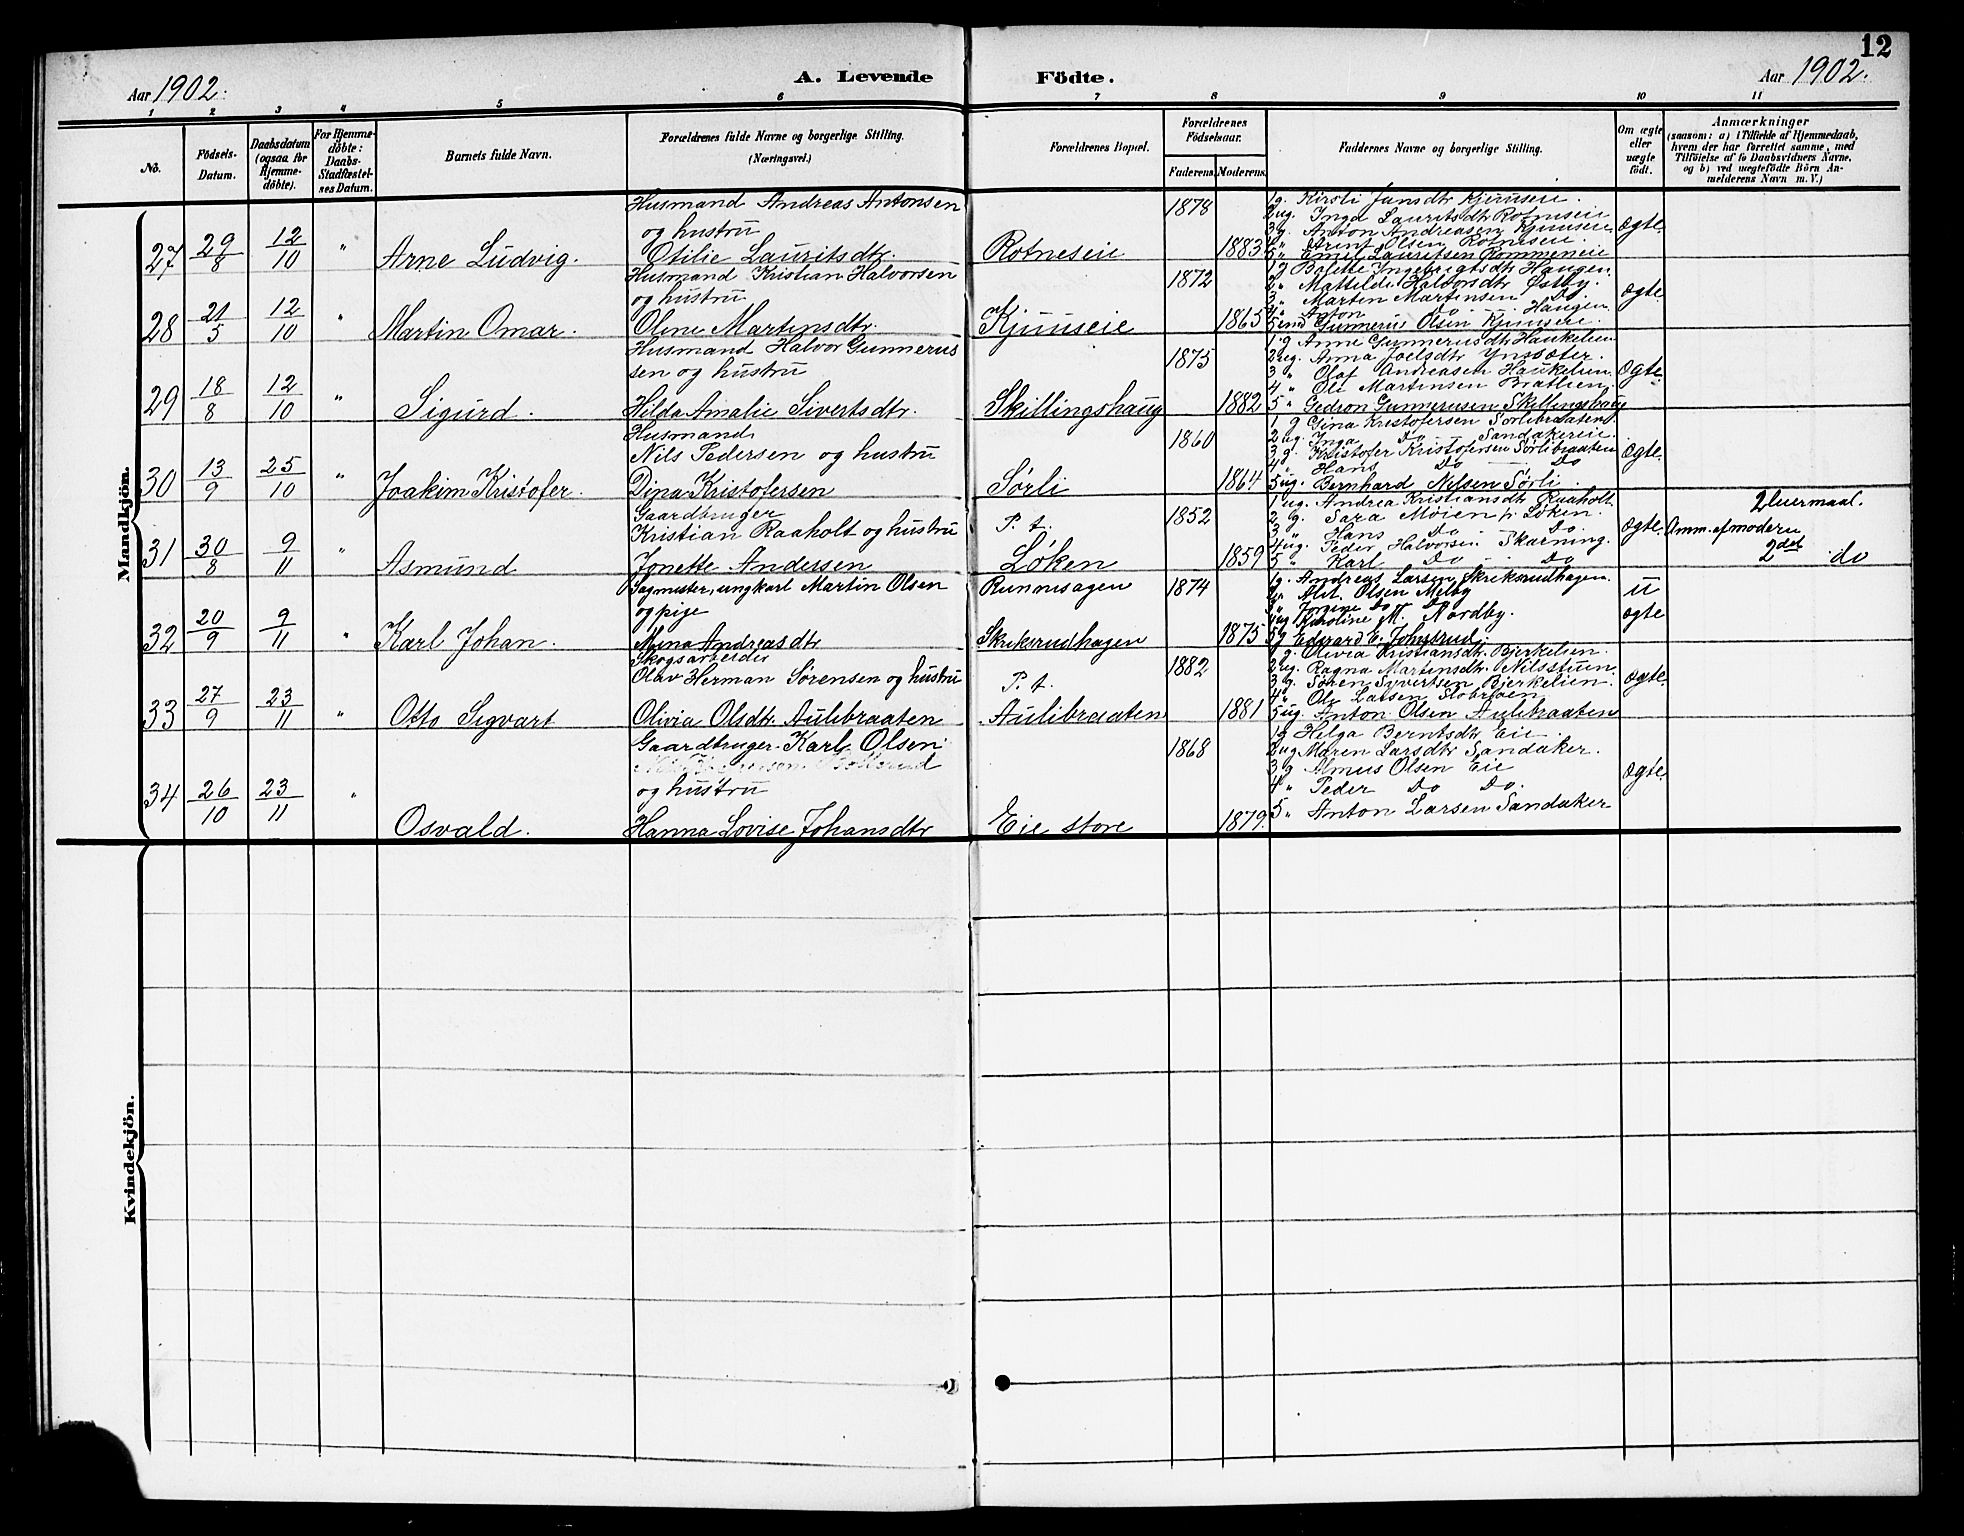 12
Aar 1902.
A. Levende
Födte.
Aar 1902.
1 2 3 4 5 6 7 8 9 10 11
No.
Födsels-
Datum.
Daabsdatum
(ogsaa for
Hjemme-
döbte).
For Hjemme-
döbte:
Daabs-
Stadfæstel-
ses Datum.
Barnets fulde Navn.
Forældrenes fulde Navne og borgerlige Stilling.
(Næringsvei.)
Forældrenes Bopæl.
Forældrenes
Födselsaar.
Faderens.
Moderens.
Faddernes Navne og borgerlige Stilling.
Om ægte
eller
uægte
födt.
Anmærkninger
(saasom: a) i Tilfælde af Hjemmedaab,
hvem der har forrettet samme, med
Tilföielse af to Daabsvidners Navne,
og b) ved uægtefödte Börn An-
melderens Navn m. V.)
Mandkjön.
27 29/8 12/10 " Arne Ludvig.
Husmand Andreas Antonsen
og hustru
Otilie Lauritsdtr.
Rotneseie
1878
1883
1 g. Kirsti Jansdtr Kjuuseie.
2 ug. Inga Lauritsdtr Rotneseie
3 g. Anton Andreasen Kjuuseie
4 " Arent Olsen Rotneseie.
5 " Emil Lauritsen Rommeneie
ægte.
28 21/5 12/10 " Martin Omar.
Husmand Kristian Halvorsen
og hustru
Oline Martinsdtr.
Kjuuseie
1872
1865
1 g Bolette Ingebrigtsdtr Haugen.
2 " Mathilde Halvorsdtr Østby.
3 " Martin Martinsen Do.
4 " Anton Do Haugen.
5 Gunnerus Olsen Kjuuseie.
ægte.
29 18/8 12/10 " Sigurd.
Husmand Halvor Gunnerus
sen og hustru
Hilda Amalie Sivertsdtr.
Skillingshaug
1875
1882
1 g Anne Gunnerusdtr Haukelien
2 ug. Anna Joelsdtr Ynssæter.
3 " Olaf Andreasen Haukelien
4 " Ole Martinsen Bratlien.
5 " Gedron Gunnerusen Skillingshaug
ægte.
30 13/9 25/10 " Joakim Kristofer.
Husmand
Nils Pedersen og hustru
Dina Kristofersen
Sørli
1860
1864
1 g Gina Kristofersen Sørlibraaten.
2 ug. Inga Do Sandakereie.
3 g. Kristofer Kristofersen Sørlibraaten
4 " Hans Do Do
5 ug. Bernhard Nilsen Sørli.
ægte.
31 30/8 9/11 " Asmund
Gaardbruger
Kristian Raaholt og hustru
Jonette Andersen
P. t.
Løken
1852
1859
1 ug. Andrea Kristiansdtr Raaholt
2 g. Sara Moien p. Løken.
3 " Hans Do Do.
4 ug. Peder Halvorsen Skarning.
5 " Karl Do Do
ægte.
2 luermaal.
Anm. af modern
2det do
32 20/9 9/11 " Karl Johan.
Sagmester, ungkarl Martin Olsen
og pige
Mina Andreasdtr
Runnisagen
Skriksrudhagen
1874
1875
1 g. Andreas Larsen Skriksrudhagen.
2 Alet. Olsen Melby
3 " Jorgine Do Do
4 ug Karoline M. Nordby.
5 g Edvard E. Johnsrud.
u
ægte
33 27/9 23/11 " Otto Sigvart
Skogsarbeider
Olav Herman Sørensen og hustru
Olivia Olsdtr. Aulibraaten
P. t.
Aulibraaten
1882
1881
1 g. Olivia Kristiansdtr. Bjerkelien.
2 ug. Ragna Martinsdtr. Nilsstuen
3 g. Søren Syvertsen Bjerkelien.
4 " Ole Larsen
5 ug. Anton Olsen Aulibraaten
ægte.
34 26/10 23/11 " Osvald.
Gaardbruger Karl Olsen
og hustru
Hanna Lovise Johansdtr
Eie store
1868
1879.
1 g Helga Berntsdtr Eie.
2 ug Maren Larsdtr Sandaker.
3 g Almus Olsen Eie
4 " Peder Do Do.
5 " Anton Larsen Sandaker
ægte.
Kvindekjön.